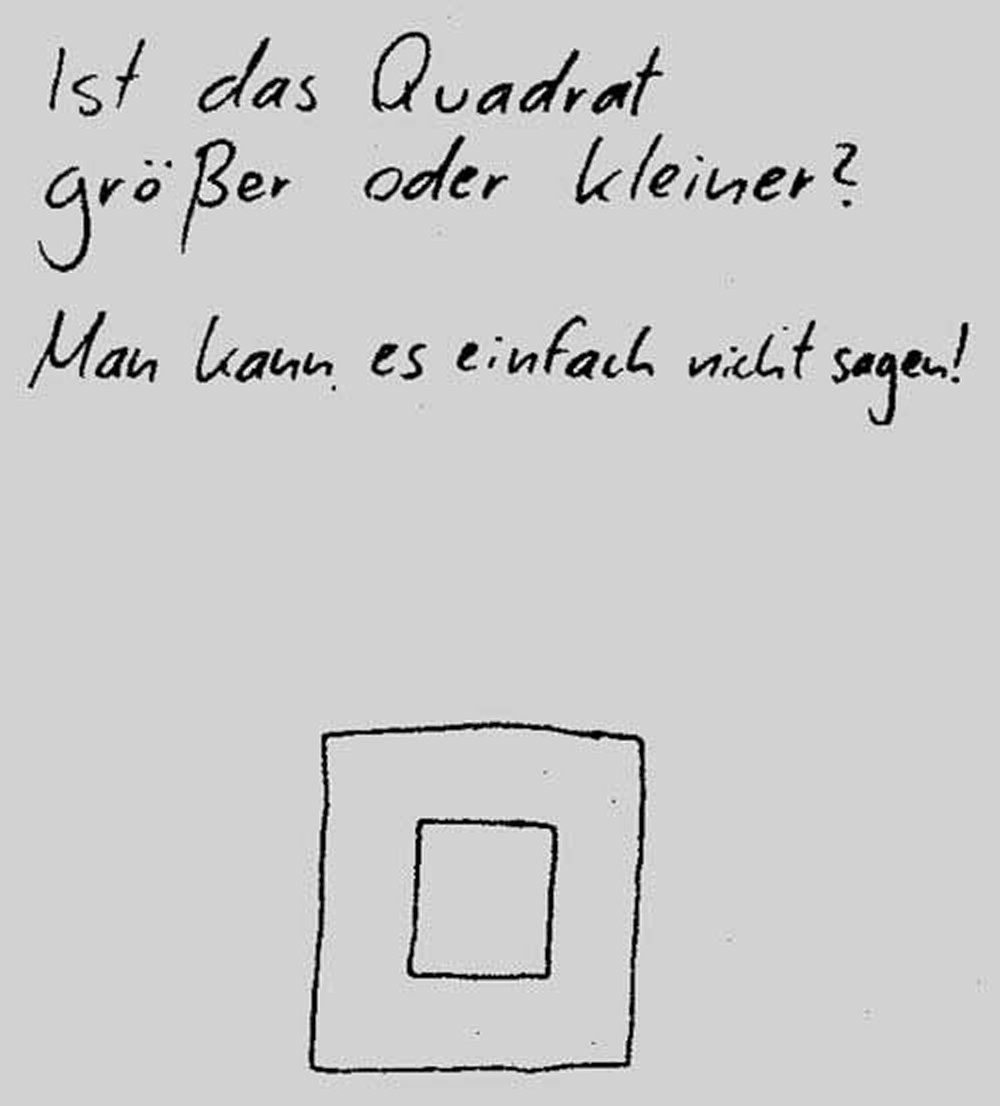 Ist das Quadrat
größer oder kleiner?
Man kann es einfach nicht sagen!